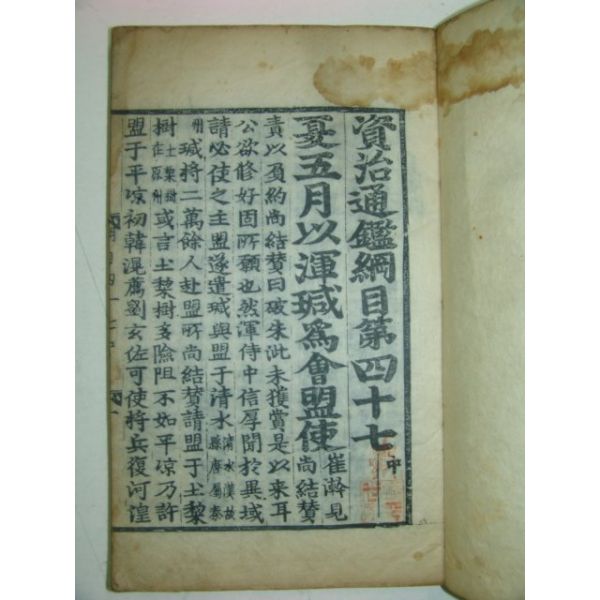 資治通鑑綱目第四十七中
夏五月以渾瑊爲會盟使崔澣見尚結賛
責以負約尚結賛曰破朱泚未獲賞是以来耳
公欲修好固所願也然渾侍中信厚聞於異域
請必使之主盟遂遣瑊與盟于清水清水漢故縣唐屬秦
州瑊将二萬餘人赴盟所尚結賛請盟于土棃
樹土棃樹在原州或言土棃樹多險阻不如平凉乃許
盟于平凉初韓滉薦劉玄佐可使将兵復河湟